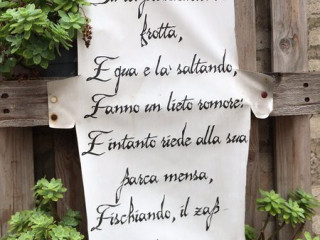 frotta,
E qua e la' saltando,
Fanno un lieto romore:
E intanto riede alla sua
parca mensa,
Fischiando, il zap-